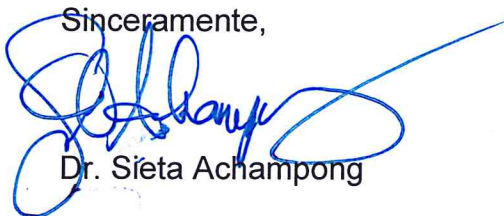 Sinceramente,
Dr. Sieta Achampong